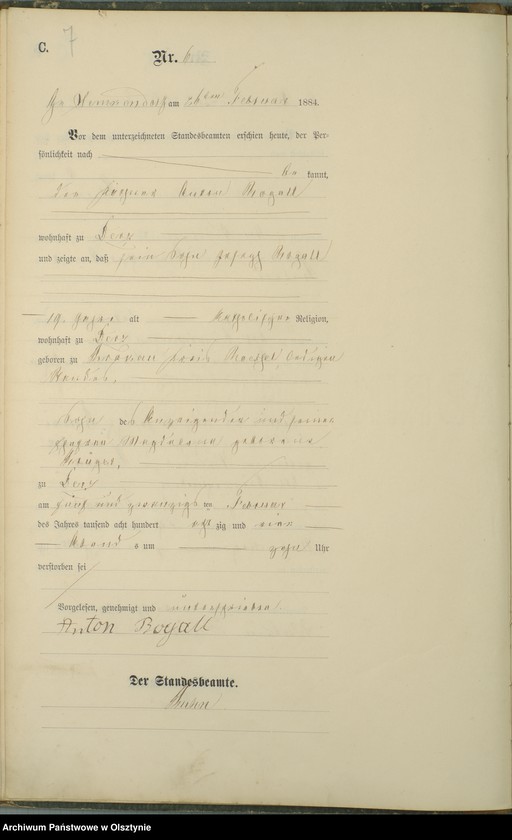 C. 7
Nr. 6
am 26ten Februar 1884.
Vor dem unterzeichneten Standesbeamten erschien heute, der Per-
sönlichkeit nach
be kannt,
der Anton Bogall
wohnhaft zu
und zeigte an, daß sein Sohn Joseph Bogall
19 Jahre alt katholischer Religion,
wohnhaft zu
geboren zu Kreis
Standes,
Sohn des Anzeigenden und seiner
Ehefrau Magdalena geborene
Krüger,
zu
am fünf und zwanzigs ten Februar
des Jahres tausend acht hundert acht zig und vier
Abend s um zehn Uhr
verstorben sei
Vorgelesen, genehmigt und unterschrieben.
Anton Bogall
Der Standesbeamte.
Archiwum Państwowe w Olsztynie